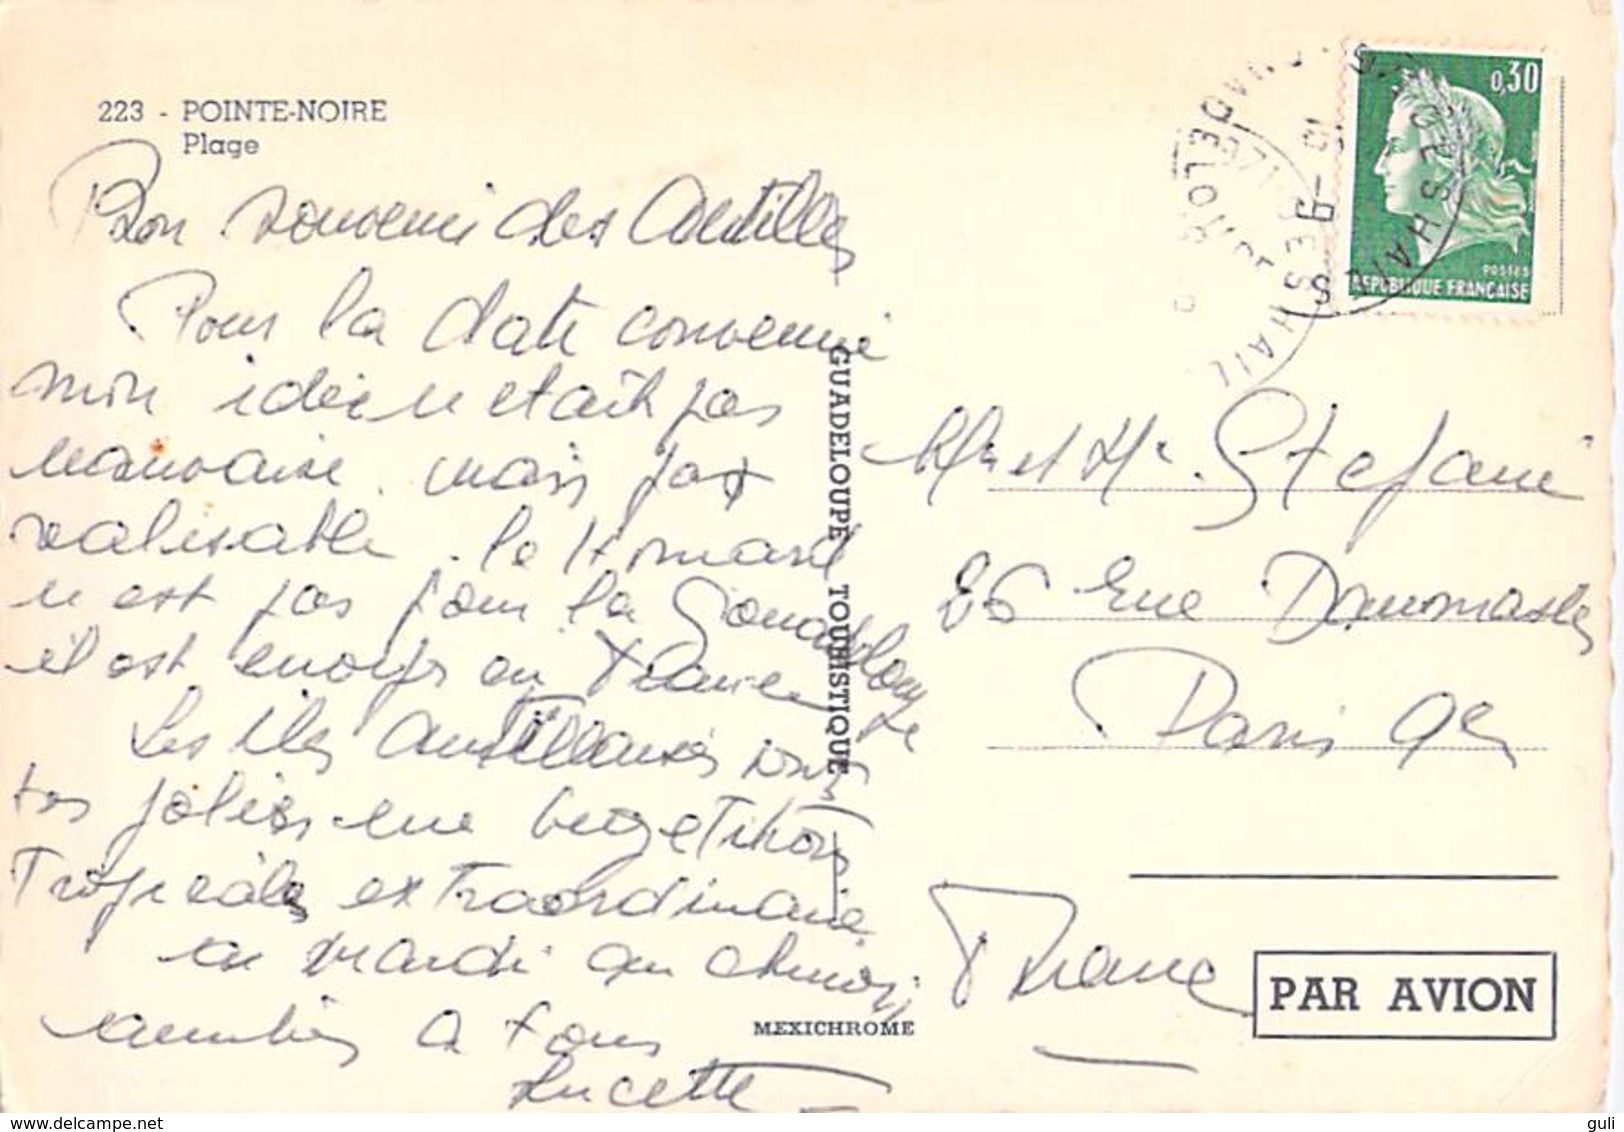 223 - POINTE-NOIRE
Plage
Bon souvenir des Antilles
Pour la date convenue
mon idée n'etait pas
mauvaise mais pas
realisable. le Homard
n'est pas pour la Gouadeloupe
il est envoyé en France
Les iles Antillaises sont
tres jolies une vegetation
Tropicales extraordinaire
a mardi
a tous
Lucette
GUADELOUPE TOURISTIQUE
MEXICHROME
0,30
POSTES
REPUBLIQUE FRANÇAISE
DESHAIES
GUADELOUPE
Mr et Me Stefani
26 rue Daumasles
Paris 9e
France
PAR AVION
guli